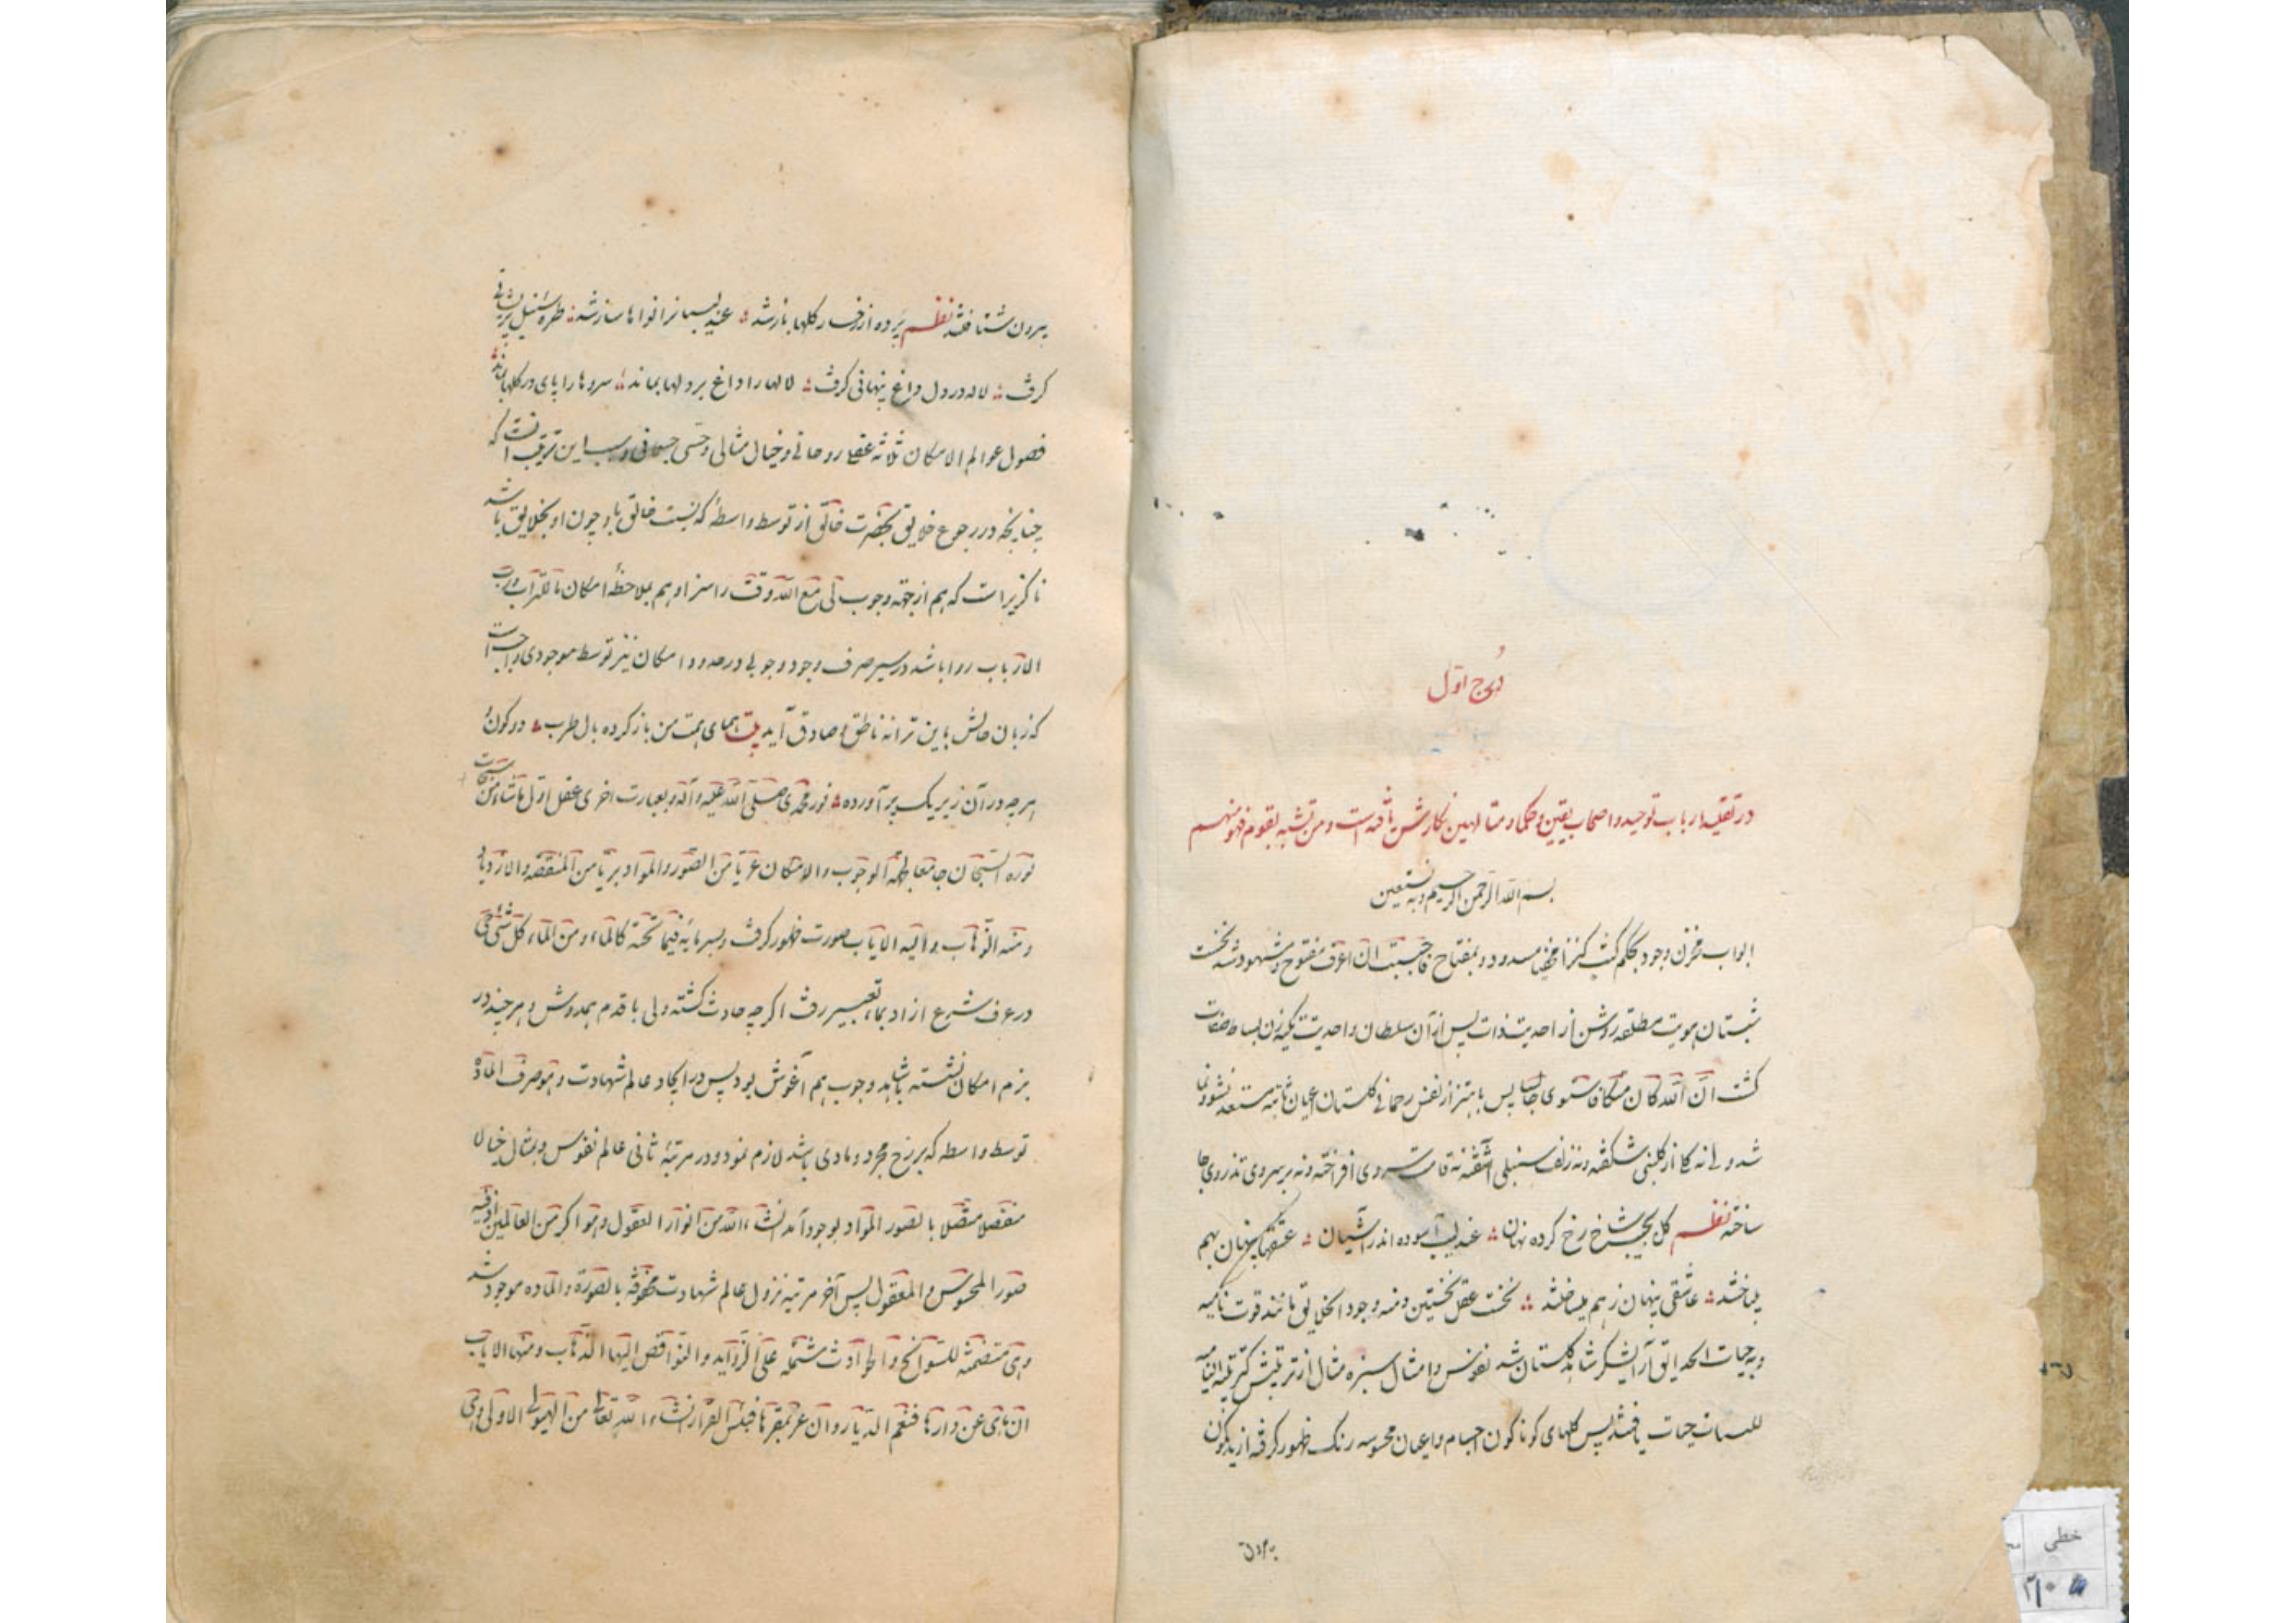 دُرج اوّل
در تقلید ارباب توحید و اصحاب یقین و حکماء متالهین نگارش یافته است و من تشبه بقوم فهو منهم
بسم الله الرحمن الرحیم و به نستعین
ابواب مخزن وجود بحکم کنت کنزا مخفیا مسدود و بمفتاح فاحببت ان اعرف مفتوح و مشهود شد نخست
شبستان هویت مطلقه روشن از احدیت ذات پس از آن سلطان واحدیت تکیه زن بساط صفات
گشت انّ الله کان پس باهتزاز نفس رحمانی گلستان اعیان ثابته مستعد نشو و نما
شد ولی نه گلی از گلبنی شکفته و نه زلف سنبلی آشفته نه قامت سروی افراخته و نه بر سروی تذروی جا
ساخته نظم گل بجیب شاخ رخ کرده نهان عندلیب آسوده اندر آشیان عشقها پنهان بهم
میباختند عاشقی پنهان زهم میساختند نخست عقل نخستین و منه وجود الخلایق مانند قوت نامیه
و به حیات الحدایق آرایشگر شاهد گلستان شد نفوس و امثال سبزه مثال از تربیتش
حیات یافتند پس گلهای گوناگون اجسام و اعیان محسوسه رنگ ظهور گرفته از
بیرون
بیرون شتافتند نظم پرده از رخسار گلها باز شد عندلیبان را نواها ساز شد طره سنبل پریشانی
گرفت لاله در دل داغ پنهانی گرفت لالها را داغ بر دلها بماند سروها را پای در گلها بماند
فصول عوالم الامکان ثلاثة عقلی روحانی و خیال مثالی و حسی جسمانی و سبب این ترتیب آنست که
چنانکه در رجوع خلایق بحضرت خالق از توسط واسطهٔ که نسبت خالق باو چون او بخلایق باشد
ناگزیر است که هم از جهة وجوب لی مع الله وقت را سزا و هم بملاحظهٔ امکان ما للتراب و رب
الارباب روا باشد در سیر صرف وجود وجوبی در حدود امکان نیز توسط موجودی واجب است
که زبان حالش باین ترانه ناطق و صادق آید بیت همای همت من باز کرده بال طرب دو کون
هر چه در آن زیر یک پر آورده نور محمدی صلی الله علیه و آله و بعبارت اخری عقل اول من سبحات
نوره السبحان جامعا لجهة الوجوب و الامکان عریا من الصور و المواد بریا من المنقصة و الازدیاد
و منه الذهاب و الیه الایاب صورت ظهور گرفت و بسر فیما تحته کالماء و من الماء کل شیء حی
در عرف شرع از او بماء تعبیر رفت اگر چه حادث گشته ولی با قدم همدوش و هر چند در
بزم امکان نشسته با شاهد وجوب هم آغوش بود پس در ایجاد عالم شهادت و هو صرف المادة
توسط واسطه که برزخ مجرد و مادی باشد لازم نمود و در مرتبهٔ ثانی عالم نفوس و مثال خیال
منفصلا متصلا بالصور المواد بوجود آمد انشاء الله من انوار العقول و هو اکبر من العالمین اذ فیه
صور المحسوس و المعقول پس آخر مرتبه نزول عالم شهادت محفوفة بالصورة و الماده موجود شد
و هی متضمنة للسوانح و الحوادث مشتملة علی الزواید و النواقص الیها الذهاب و منها الایاب
ان نای عن دارها فنعم الدیار و ان عر بمقرها فبئس القرار انشاء الله تعالی من الهیولی الاولی و هی
خطی